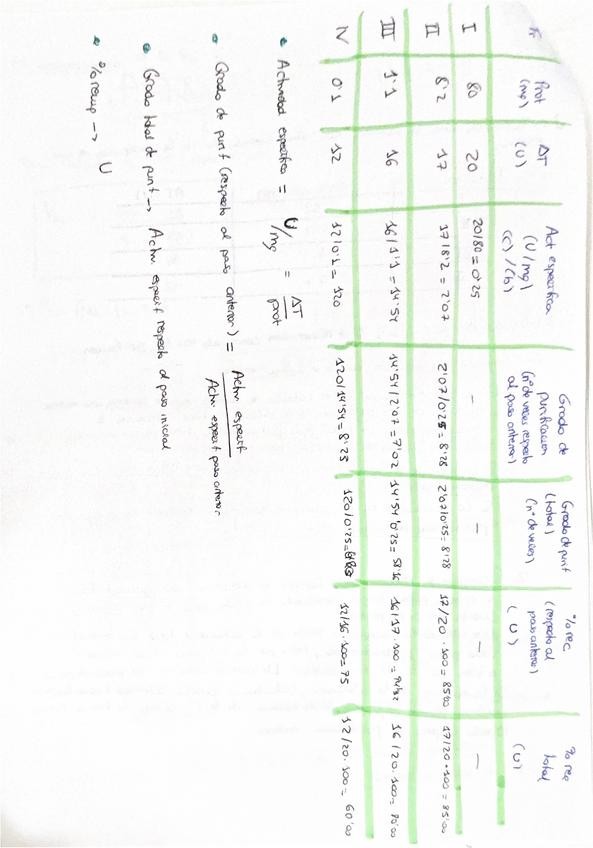 Fr | Prot (mg) | ΔT (U) | Act específica (U/mg) (c)/(b) | Grado de purificación (nº de veces respecto al paso anterior) | Grado de purif (total) (nº de veces) | % rec (respecto al paso anterior) (U) | % rec total (U)
I | 80 | 20 | 20/80 = 0'25 | - | - | - | -
II | 8'2 | 17 | 17/8'2 = 2'07 | 2'07/0'25 = 8'28 | 2'07/0'25 = 8'28 | 17/20 · 100 = 85'00 | 17/20 · 100 = 85'00
III | 1'1 | 16 | 16/1'1 = 14'54 | 14'54/2'07 = 7'02 | 14'54/0'25 = 58'16 | 16/17 · 100 = 94'12 | 16/20 · 100 = 80'00
IV | 0'1 | 12 | 12/0'1 = 120 | 120/14'54 = 8'25 | 120/0'25 = | 12/16 · 100 = 75 | 12/20 · 100 = 60'00
• Actividad específica = U/mg = ΔT / prot
• Grado de purif (respecto al paso anterior) = Activ especif / Activ especif paso anterior
• Grado total de purif → Activ especif respecto al paso inicial
• % recup → U